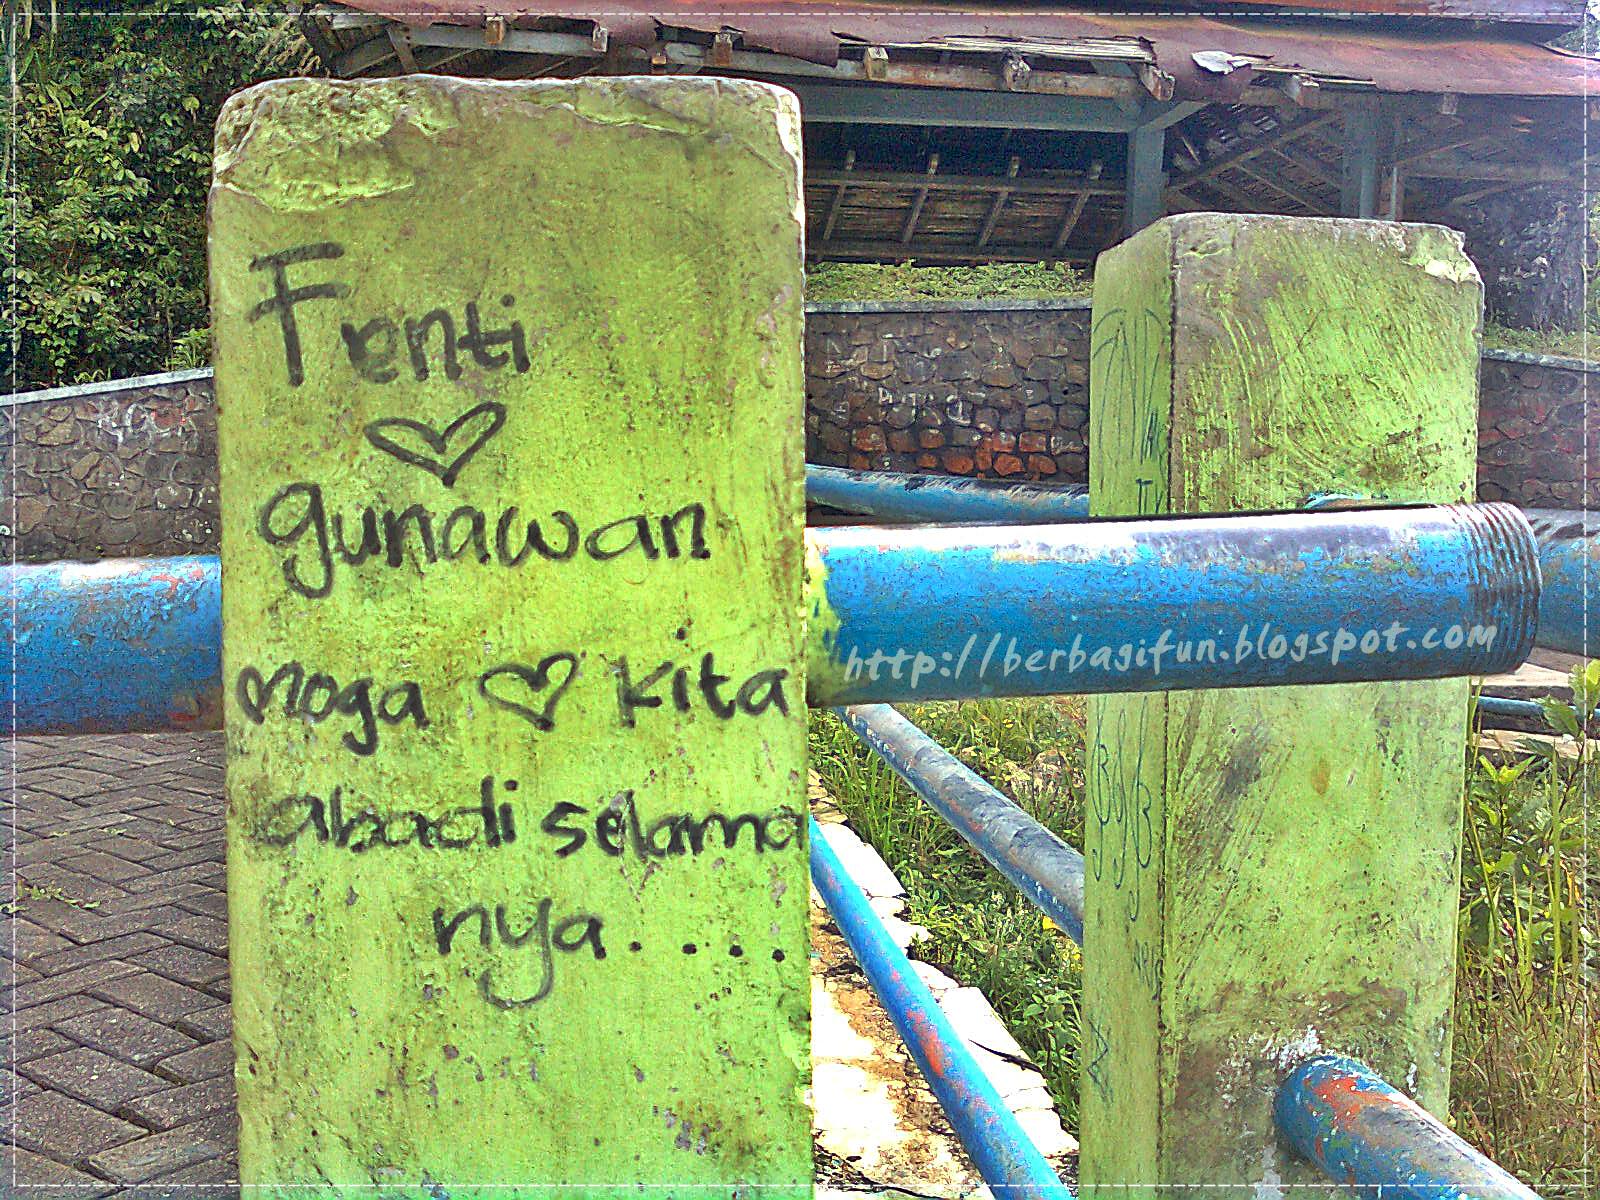 Frenti
♡
gunawan
moga ♡ kita
abadi selama
nya.....
http://berbagifun.blogspot.com